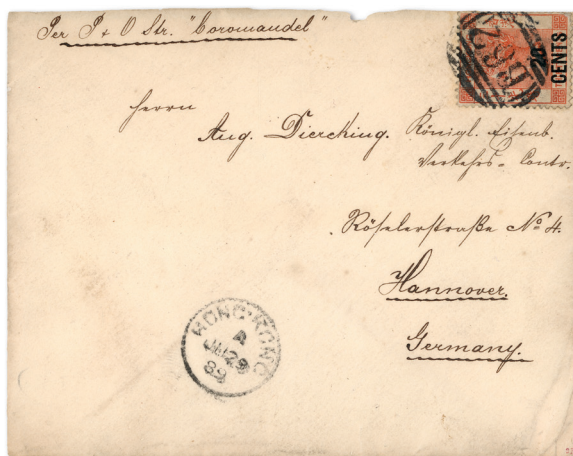 Per P & O Str. "Coromandel"
B62
20 CENTS
Herrn
Aug. Dierching. Königl. Eisenb.
Verkehrs-Contr.
Röselerstraße No 4.
Hannover.
Germany.
HONG-KONG
A
JA 29
89